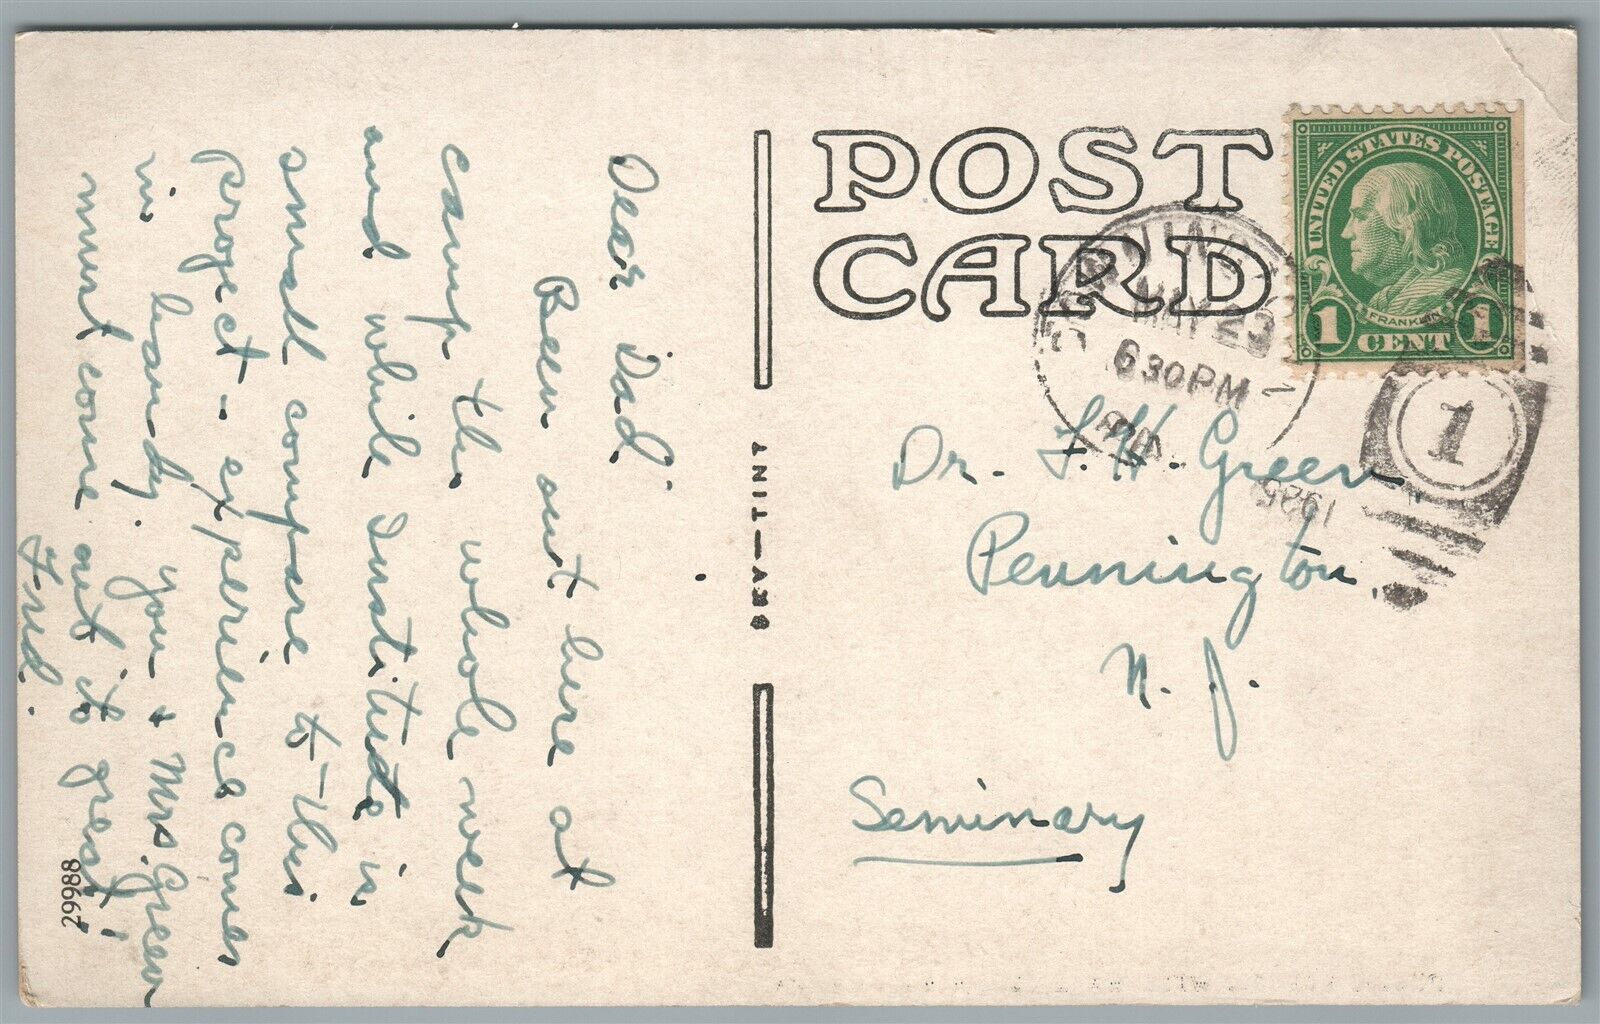 POST
CARD
UNITED STATES POSTAGE
FRANKLIN
1 CENT 1
MAY 23
6 30 PM
1925
1
Dear Dad.
Been out here at
camp the whole week
and while Institute is
small compare to this
project - experience comes
in handy. you + Mrs. Green
must come out its great!
Fred.
Dr. F. H. Green
Pennington
N. J.
Seminary
SKY-TINT
29988